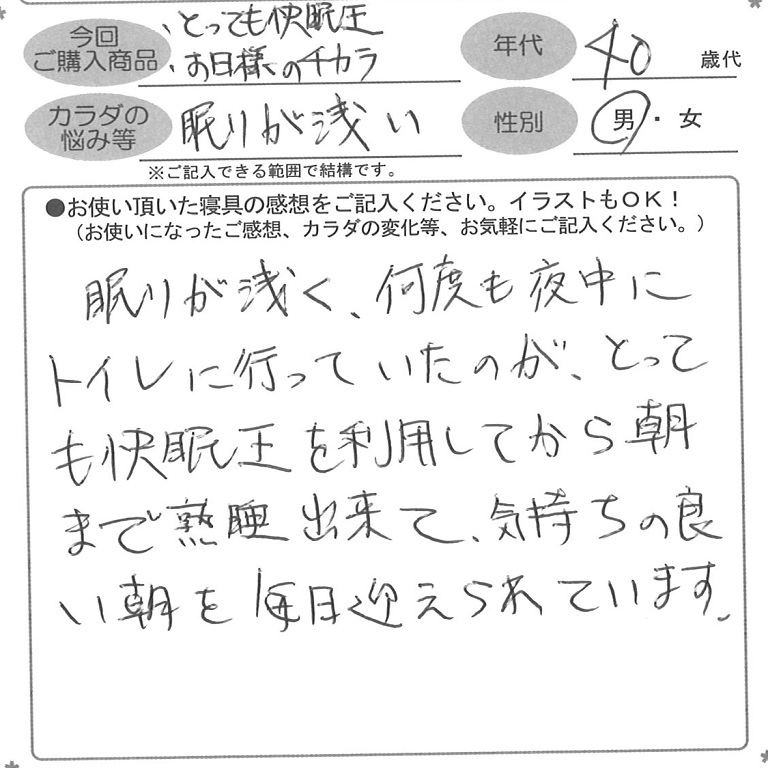 今回
ご購入商品
・とっても快眠王
・お日様のチカラ
年代
40 歳代
カラダの
悩み等
眠りが浅い
性別
男・女
※ご記入できる範囲で結構です。
●お使い頂いた寝具の感想をご記入ください。イラストもOK!
(お使いになったご感想、カラダの変化等、お気軽にご記入ください。)
眠りが浅く、何度も夜中に
トイレに行っていたのが、とって
も快眠王を利用してから朝
まで熟睡出来て、気持ちの良
い朝を毎日迎えられています。